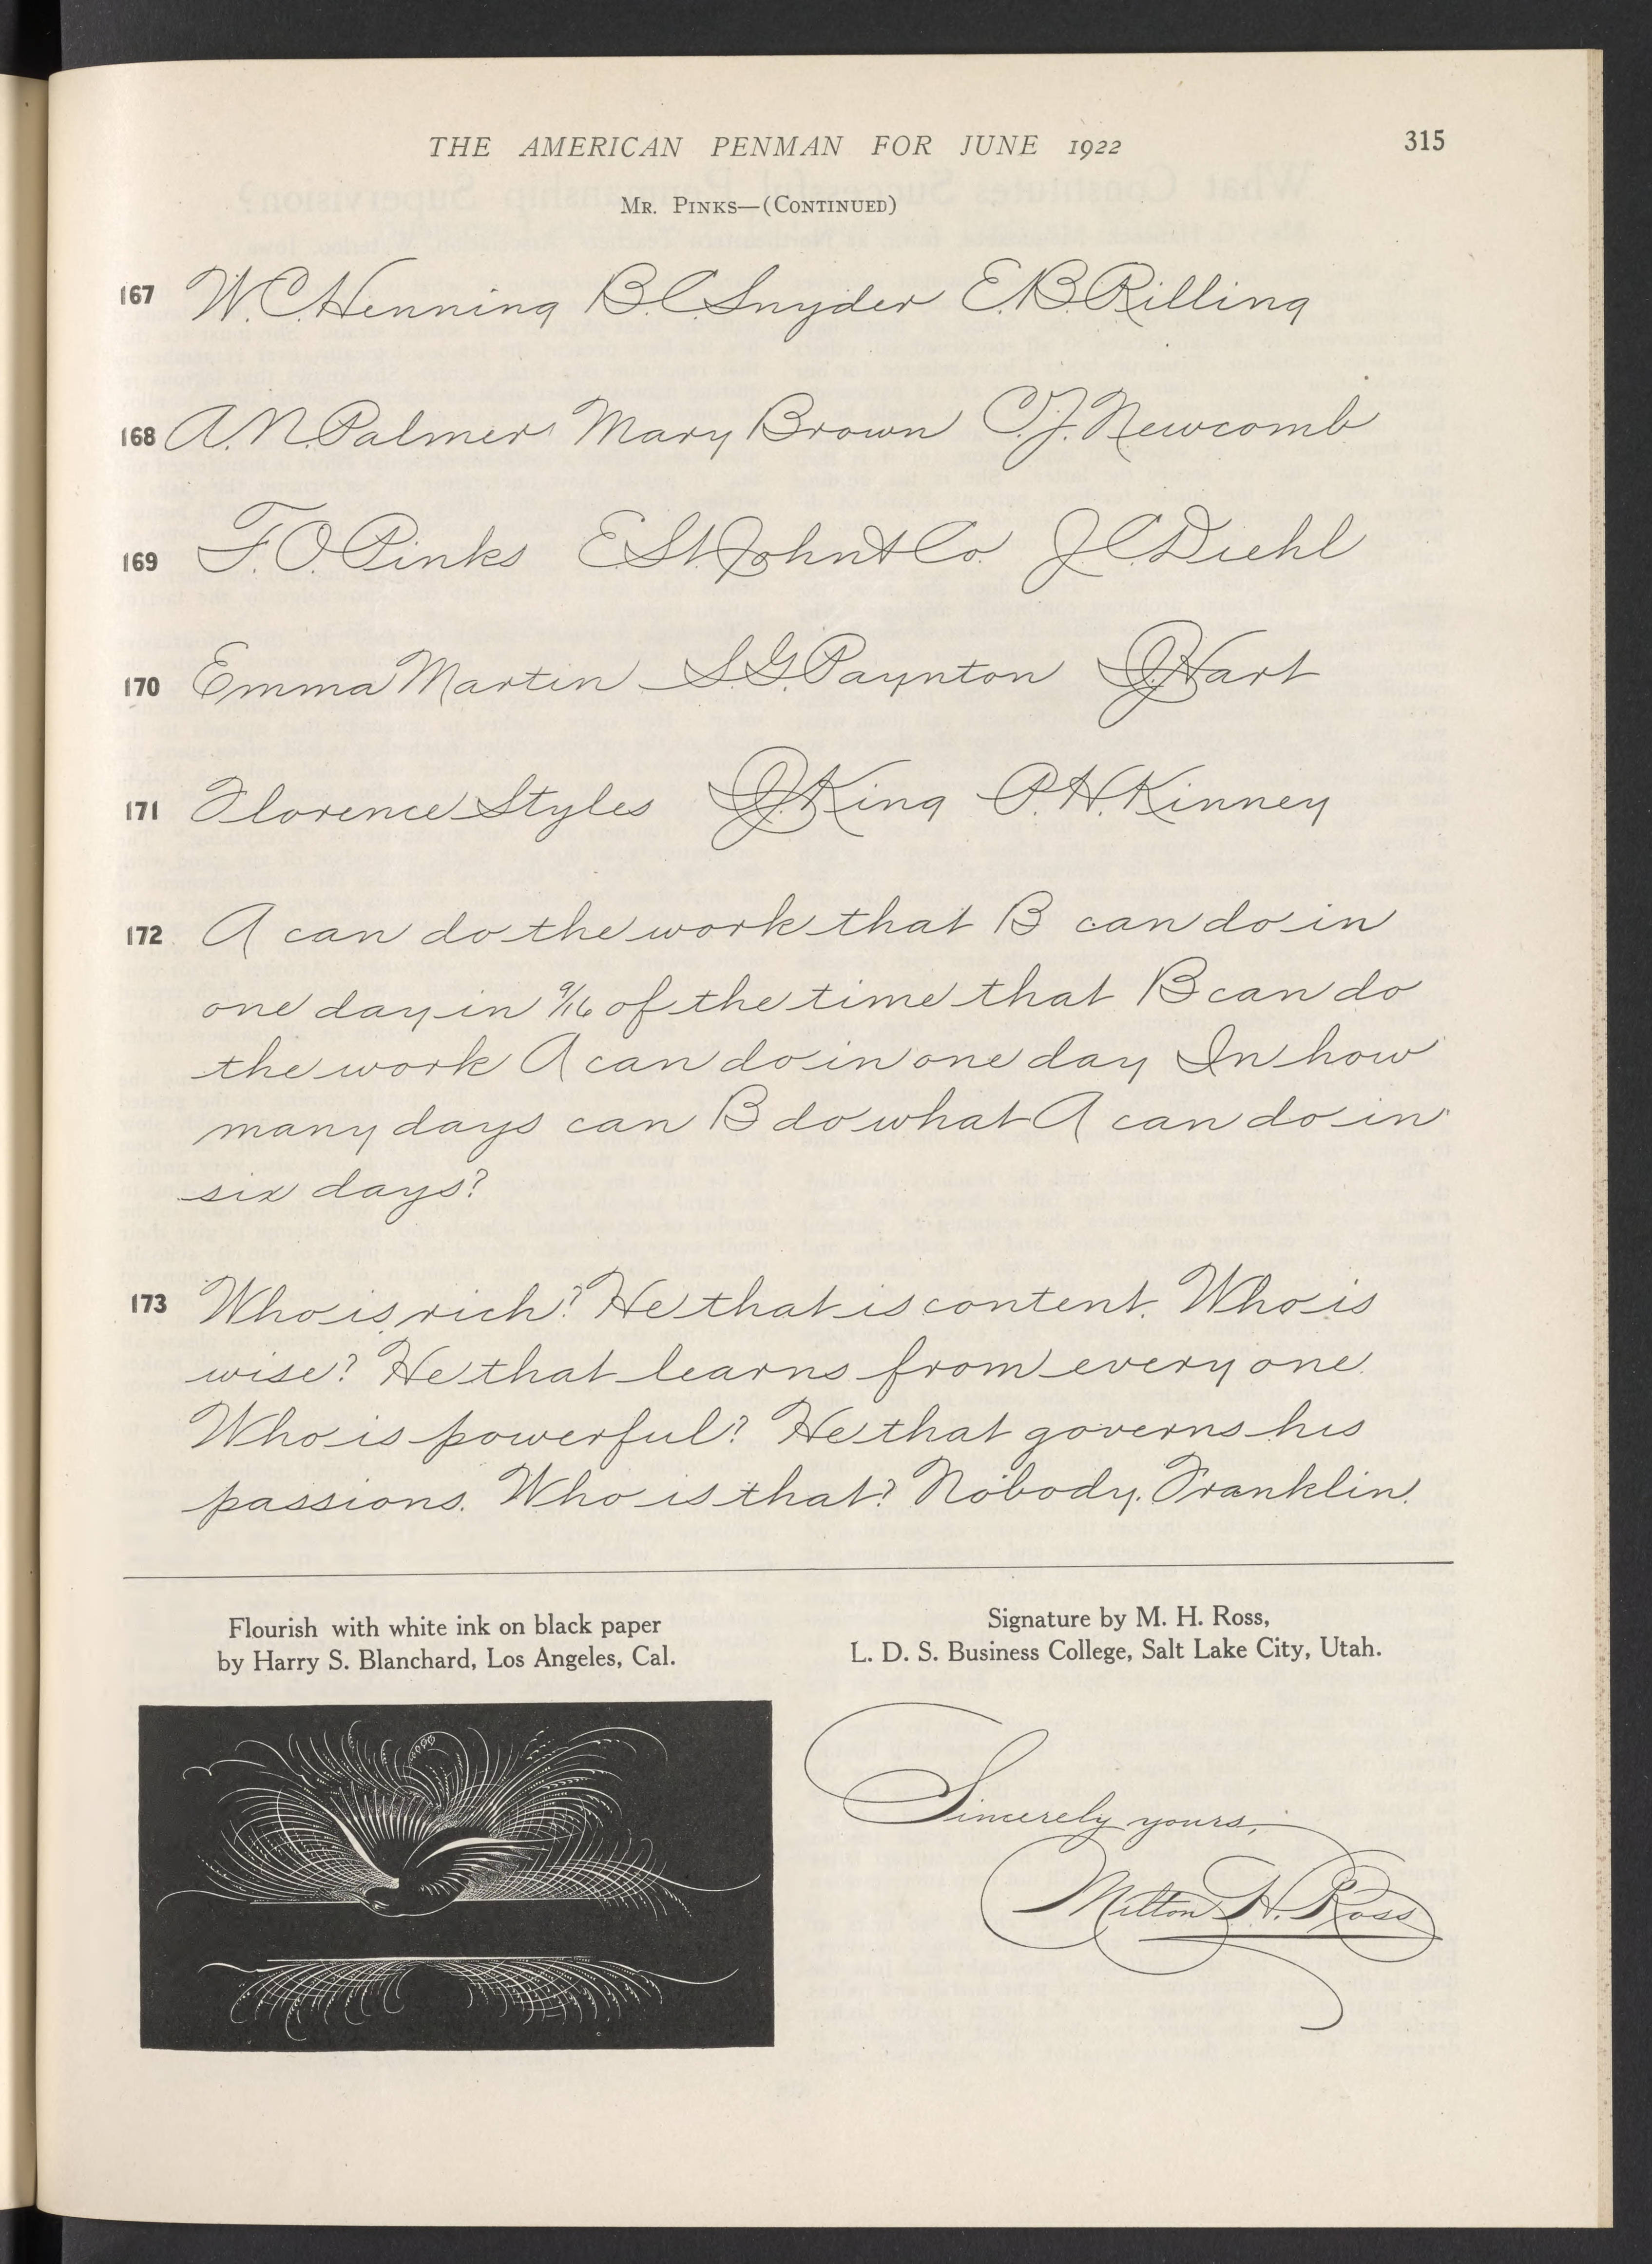 THE AMERICAN PENMAN FOR JUNE 1922 315
MR. PINKS—(CONTINUED)
167 W.C. Henning B.C. Snyder E.B. Rilling
168 A.N. Palmer Mary Brown C.J. Newcomb
169 F.O. Pinks E. St. John & Co. J.C. Diehl
170 Emma Martin S.G. Paynton J. Hart
171 Florence Styles J. King P.H. Kinney
172 A can do the work that B can do in
one day in 9/16 of the time that B can do
the work A can do in one day In how
many days can B do what A can do in
six days?
173 Who is rich? He that is content. Who is
wise? He that learns from every one.
Who is powerful? He that governs his
passions. Who is that? Nobody. Franklin.
Flourish with white ink on black paper
by Harry S. Blanchard, Los Angeles, Cal.
Signature by M. H. Ross,
L. D. S. Business College, Salt Lake City, Utah.
Sincerely yours,
Milton H. Ross